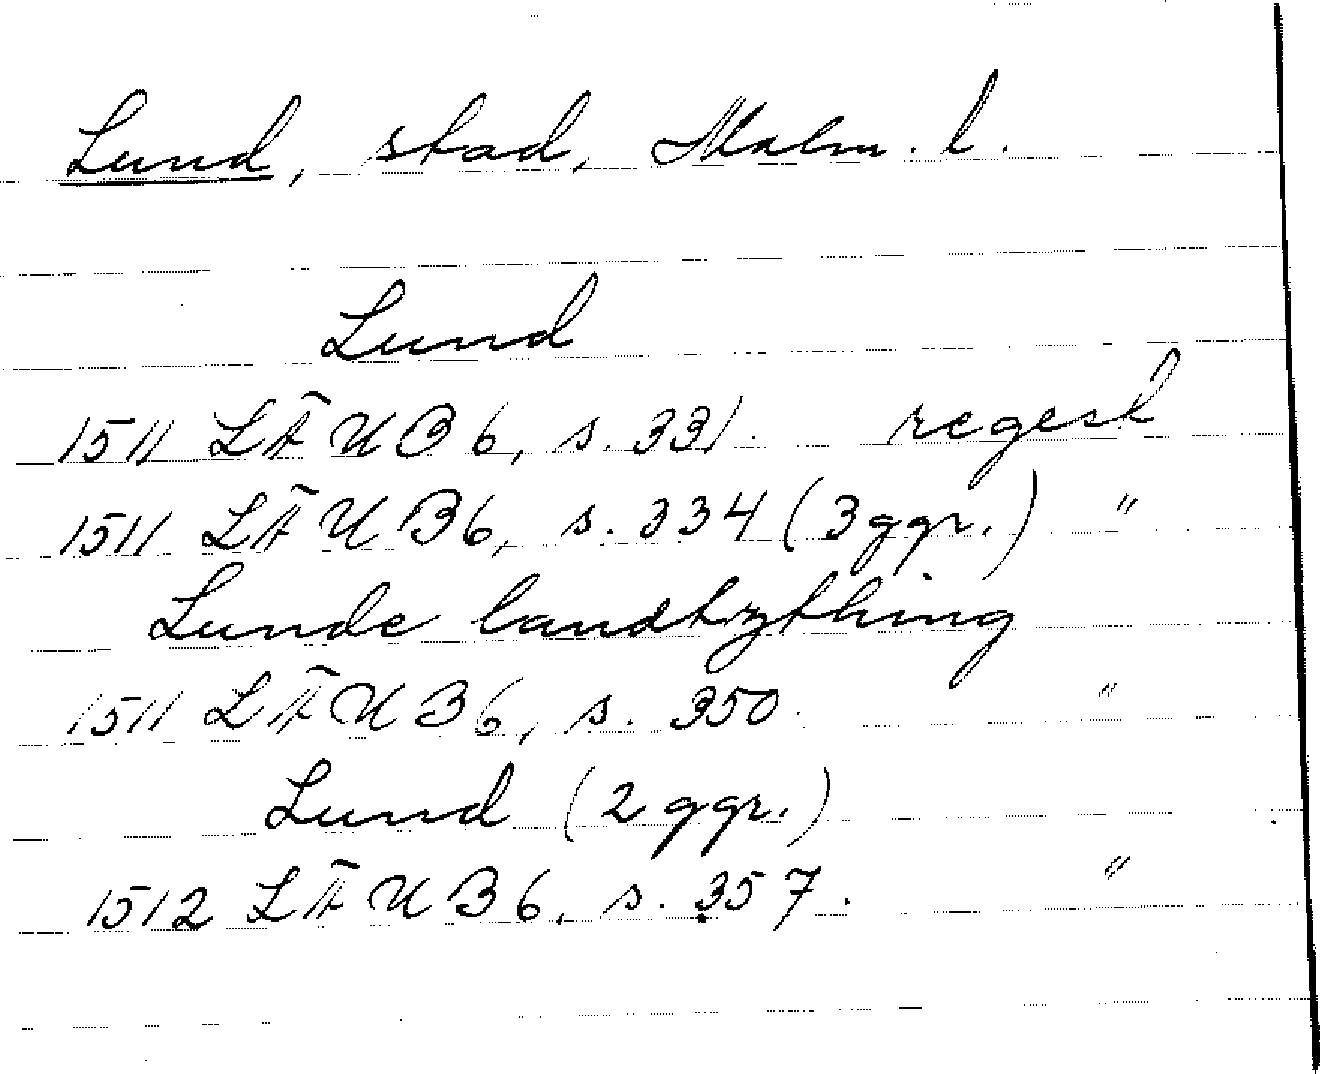 Lund, stad, Malm. l.
Lund
1511 LÄUB 6, s. 331. regest
1511 LÄUB 6, s. 334 (3 ggr.) "
Lunde landtzthing
1511 LÄUB 6, s. 350. "
Lund (2 ggr.)
1512 LÄUB 6, s. 357. "